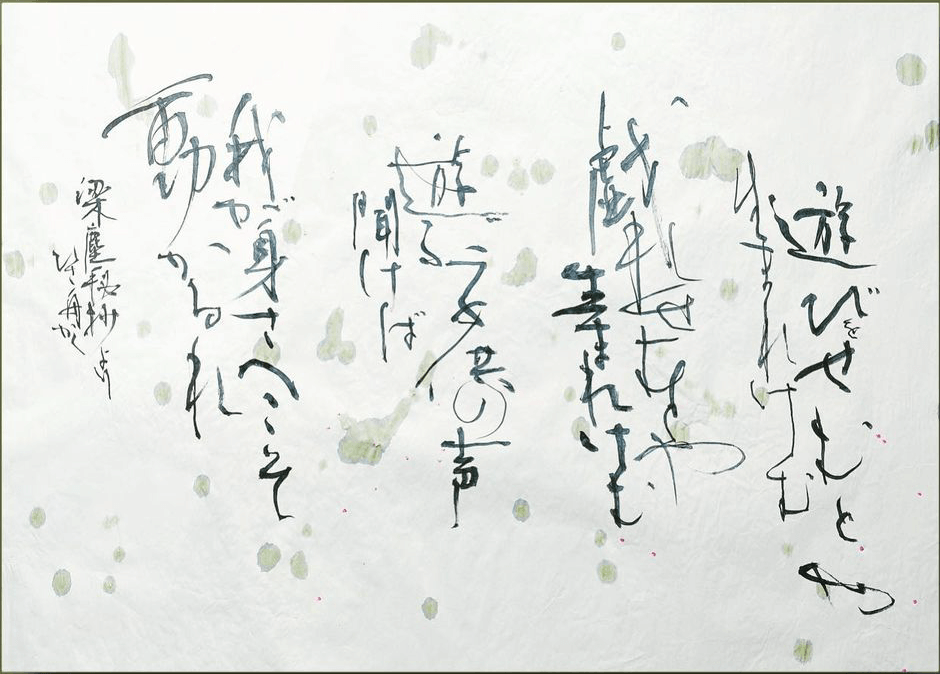 遊びをせむとや
生まれけむ
戯れせむとや
生まれけむ
遊ふ子供の声
聞けば
我が身さへこそ
動かるれ
梁塵秘抄より